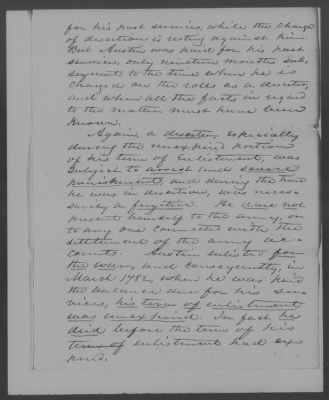 for his past services, while the charge
of desertion is resting against him.
But Austin was paid for his past
services, only nineteen months sub-
sequent to the time when he is
charged on the rolls as a deserter,
and when all the facts in regard
to the matter must have been
known.
Again, a deserter, especially
during the unexpired portion
of his term of enlistment, was
subject to arrest and severe
punishment, and during the time
he was in desertion, was neces-
sarily a fugitive. He dare not
present himself to the army, or
to any one connected with the
settlement of the army ac-
counts. Austin enlisted for
the war, and consequently, in
March 1782, when he was paid
the balance due for his ser-
vices, his term of enlistment
was unexpired. In fact he
died before the term of his
term of enlistment had ex-
pired.